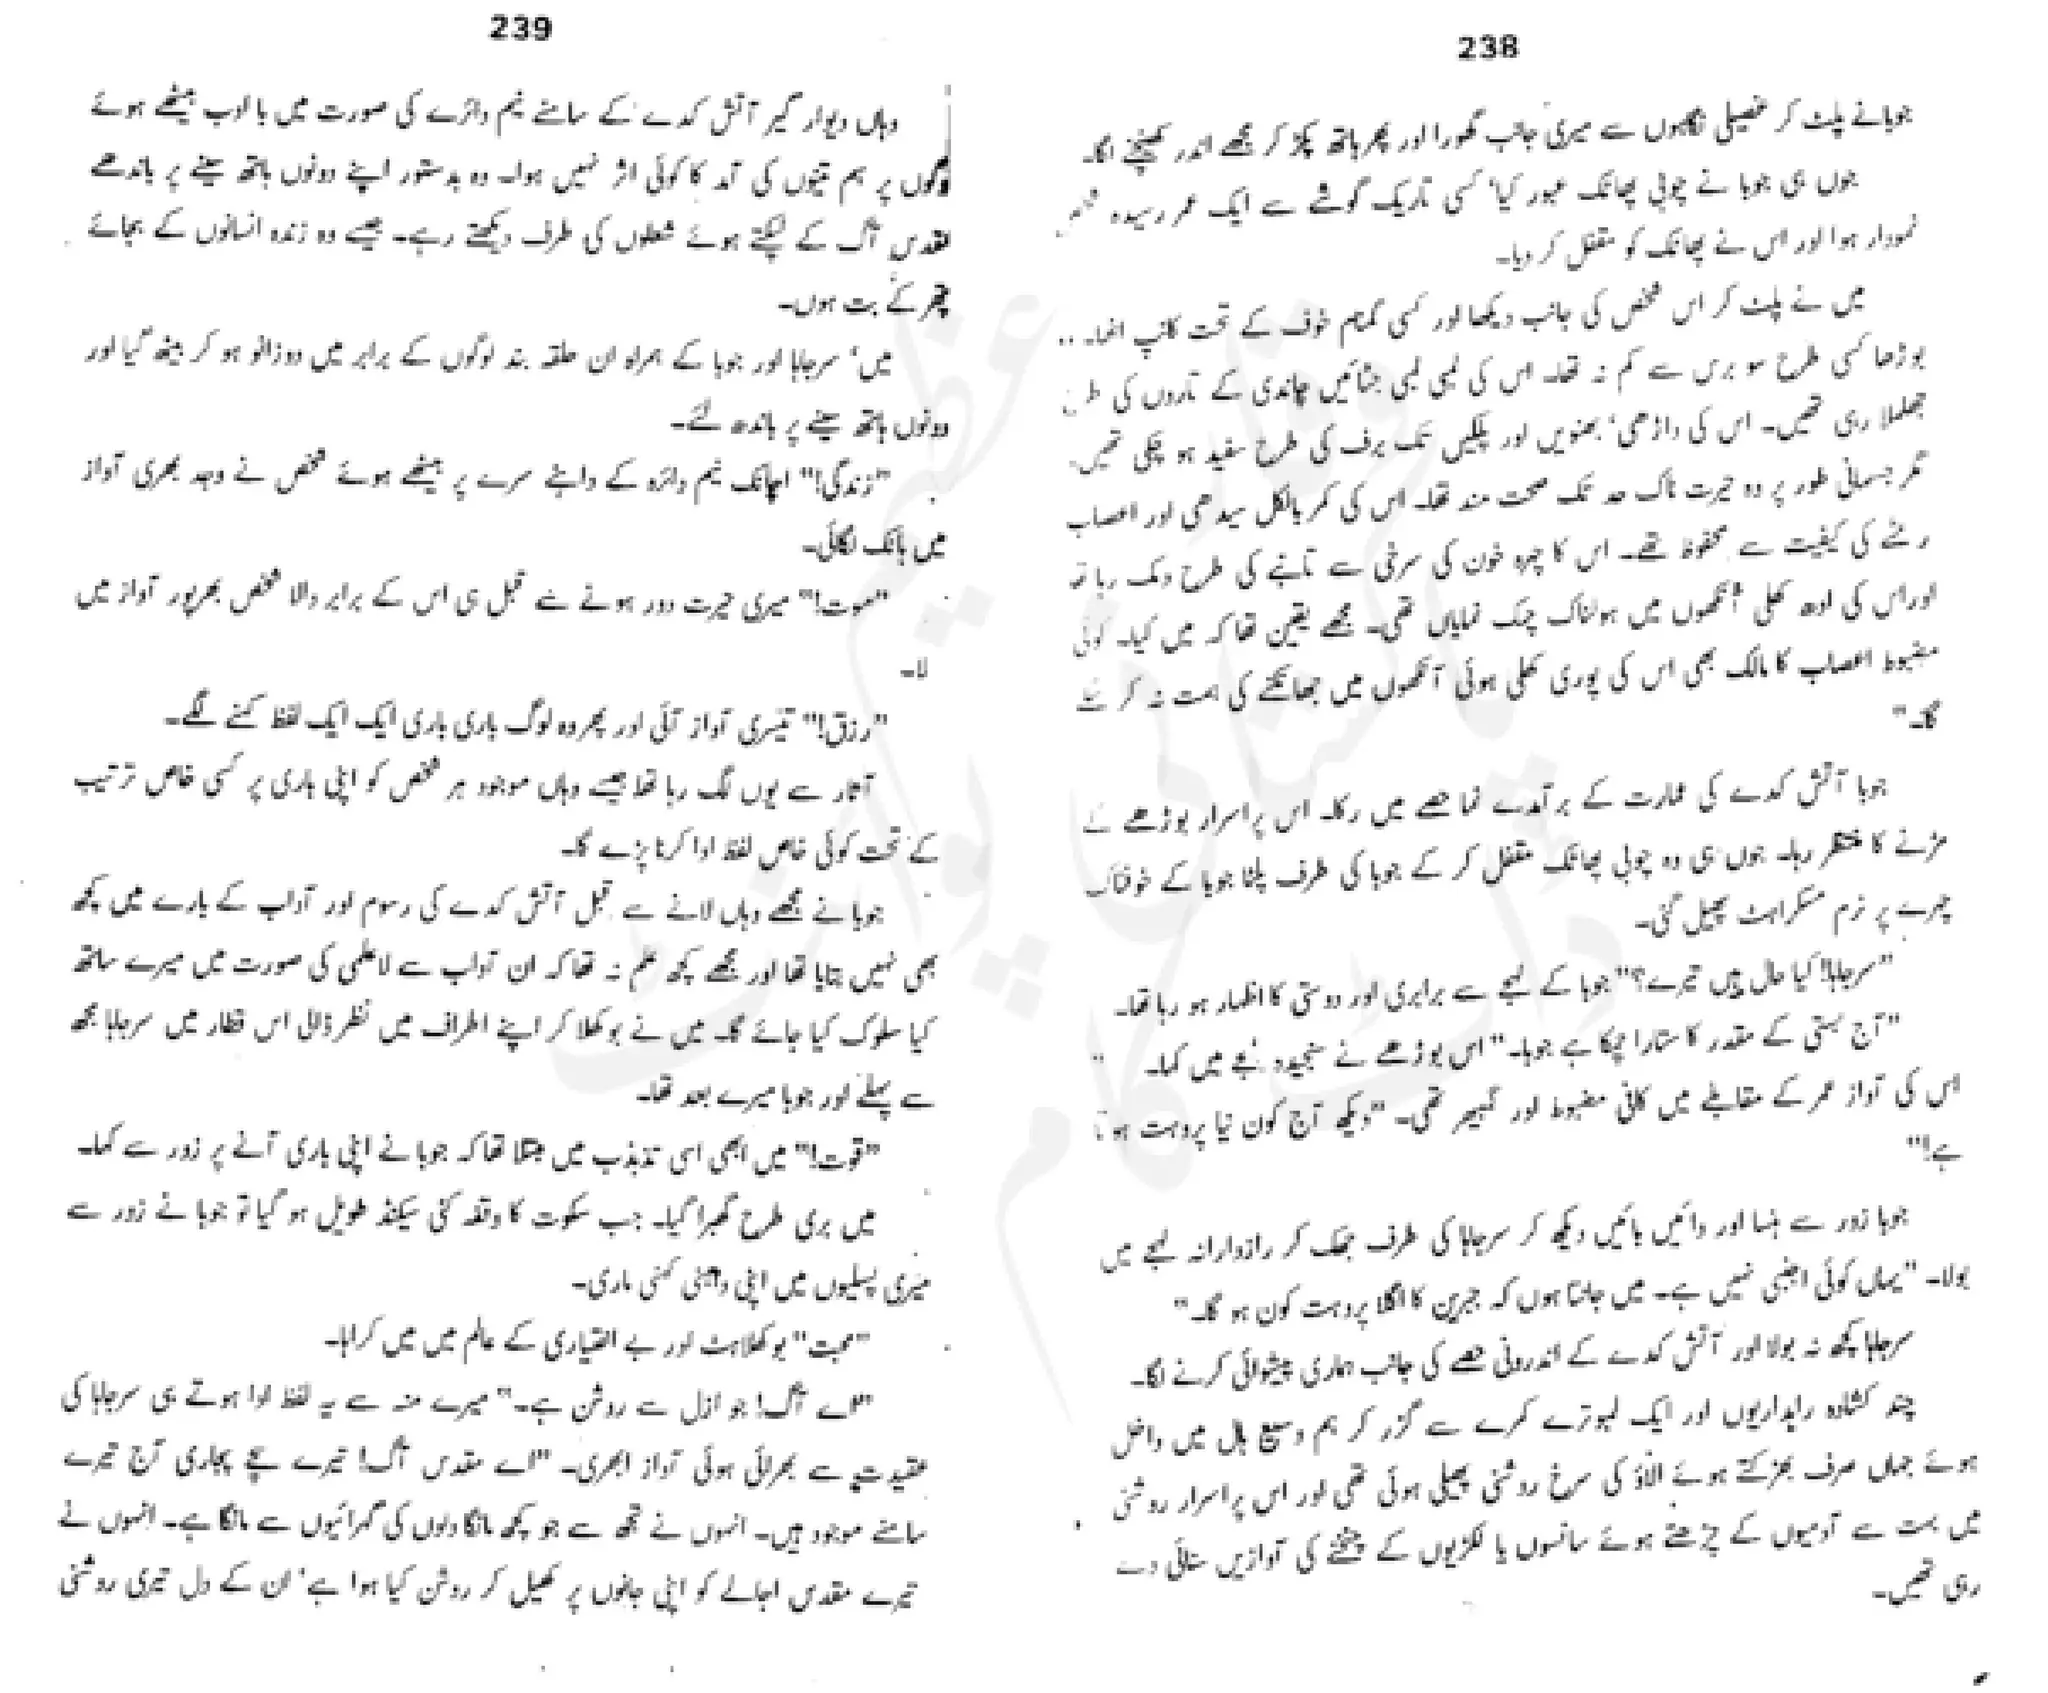 238
جوبا نے پلٹ کر غصیلی نگاہوں سے میری جانب گھورا اور پھر ہاتھ پکڑ کر مجھے اندر کھینچنے لگا۔
جوں ہی جوبا نے چوبی پھاٹک عبور کیا، کسی تاریک گوشے سے ایک عمر رسیدہ
نمودار ہوا اور اس نے پھاٹک کو مقفل کر دیا۔
میں نے پلٹ کر اس شخص کی جانب دیکھا اور کسی گمنام خوف کے تحت کانپ اٹھا۔ ..
بوڑھا کسی طرح سو برس سے کم نہ تھا۔ اس کی لمبی لمبی جٹائیں چاندی کے تاروں کی طرح
جھلملا رہی تھیں۔ اس کی داڑھی، بھنویں اور پلکیں تک برف کی طرح سفید ہو چکی تھیں۔
مگر جسمانی طور پر وہ حیرت ناک حد تک صحت مند تھا۔ اس کی کمر بالکل سیدھی اور اعصاب
رعشے کی کیفیت سے محفوظ تھے۔ اس کا چہرہ خون کی سرخی سے تانبے کی طرح دمک رہا تھا
اور اس کی ادھ کھلی آنکھوں میں ہولناک چمک نمایاں تھی۔ مجھے یقین تھا کہ میں کیا۔ کوئی
مضبوط اعصاب کا مالک بھی اس کی پوری کھلی ہوئی آنکھوں میں جھانکنے کی ہمت نہ کر سکے
گا۔"
جوبا آتش کدے کی عمارت کے برآمدے نما حصے میں رکا۔ اس پراسرار بوڑھے کے
مڑنے کا منتظر رہا۔ جوں ہی وہ چوبی پھاٹک مقفل کر کے جوبا کی طرف پلٹا جوبا کے خوفناک
چہرے پر نرم مسکراہٹ پھیل گئی۔
"سرجابا! کیا حال ہیں تیرے؟" جوبا کے لہجے سے برابری اور دوستی کا اظہار ہو رہا تھا۔
"آج بستی کے مقدر کا ستارا چمکا ہے جوبا۔" اس بوڑھے نے سنجیدہ لہجے میں کہا۔ "
اس کی آواز عمر کے مقابلے میں کافی مضبوط اور گمبھیر تھی۔ "دیکھ آج کون نیا پروہت ہوتا
ہے!"
جوبا زور سے ہنسا اور دائیں بائیں دیکھ کر سرجابا کی طرف جھک کر رازدارانہ لہجے میں
بولا۔ "یہاں کوئی اجنبی نہیں ہے۔ میں جانتا ہوں کہ جبرین کا اگلا پروہت کون ہو گا۔"
سرجابا کچھ نہ بولا اور آتش کدے کے اندرونی حصے کی جانب ہماری پیشوائی کرنے لگا۔
چند کشادہ راہداریوں اور ایک لمبوترے کمرے سے گزر کر ہم وسیع ہال میں داخل
ہوئے جہاں صرف بھڑکتے ہوئے الاؤ کی سرخ روشنی پھیلی ہوئی تھی اور اس پراسرار روشنی
میں بہت سے آدمیوں کے چڑھتے ہوئے سانسوں یا لکڑیوں کے چٹخنے کی آوازیں سنائی دے
رہی تھیں۔
239
وہاں دیوار گیر آتش کدے کے سامنے نیم دائرے کی صورت میں با ادب بیٹھے ہوئے
لوگوں پر ہم تینوں کی آمد کا کوئی اثر نہیں ہوا۔ وہ بدستور اپنے دونوں ہاتھ سینے پر باندھے
مقدس آگ کے لپکتے ہوئے شعلوں کی طرف دیکھتے رہے۔ جیسے وہ زندہ انسانوں کے بجائے
پتھر کے بت ہوں۔
میں، سرجابا اور جوبا کے ہمراہ ان حلقہ بند لوگوں کے برابر میں دوزانو ہو کر بیٹھ گیا اور
دونوں ہاتھ سینے پر باندھ لئے۔
"زندگی!" اچانک نیم دائرہ کے داہنے سرے پر بیٹھے ہوئے شخص نے وجد بھری آواز
میں ہانک لگائی۔
"موت!" میری حیرت دور ہونے سے قبل ہی اس کے برابر والا شخص بھرپور آواز میں
لا۔
"رزق!" تیسری آواز آئی اور پھر وہ لوگ باری باری ایک ایک لفظ کہنے لگے۔
آثار سے یوں لگ رہا تھا جیسے وہاں موجود ہر شخص کو اپنی باری پر کسی خاص ترتیب
کے تحت کوئی خاص لفظ ادا کرنا پڑے گا۔
جوبا نے مجھے وہاں لانے سے قبل آتش کدے کی رسوم اور آداب کے بارے میں کچھ
بھی نہیں بتایا تھا اور مجھے کچھ علم نہ تھا کہ ان آداب سے لاعلمی کی صورت میں میرے ساتھ
کیا سلوک کیا جائے گا۔ میں نے بوکھلا کر اپنے اطراف میں نظر ڈالی اس قطار میں سرجابا مجھ
سے پہلے اور جوبا میرے بعد تھا۔
"قوت!" میں ابھی اسی تذبذب میں مبتلا تھا کہ جوبا نے اپنی باری آنے پر زور سے کہا۔
میں بری طرح گھبرا گیا۔ جب سکوت کا وقفہ کئی سیکنڈ طویل ہو گیا تو جوبا نے زور سے
میری پسلیوں میں اپنی داہنی کہنی ماری۔
"محبت" بوکھلاہٹ اور بے اختیاری کے عالم میں میں کراہا۔
"اے آگ! جو ازل سے روشن ہے۔" میرے منہ سے یہ لفظ ادا ہوتے ہی سرجابا کی
عقیدت سے بھرائی ہوئی آواز ابھری۔ "اے مقدس آگ! تیرے سچے پجاری آج تیرے
سامنے موجود ہیں۔ انہوں نے تجھ سے جو کچھ مانگا دلوں کی گہرائیوں سے مانگا ہے۔ انہوں نے
تیرے مقدس اجالے کو اپنی جانوں پر کھیل کر روشن کیا ہوا ہے، ان کے دل تیری روشنی
عظیم
پاکستانی پوائنٹ
ڈاٹ کام